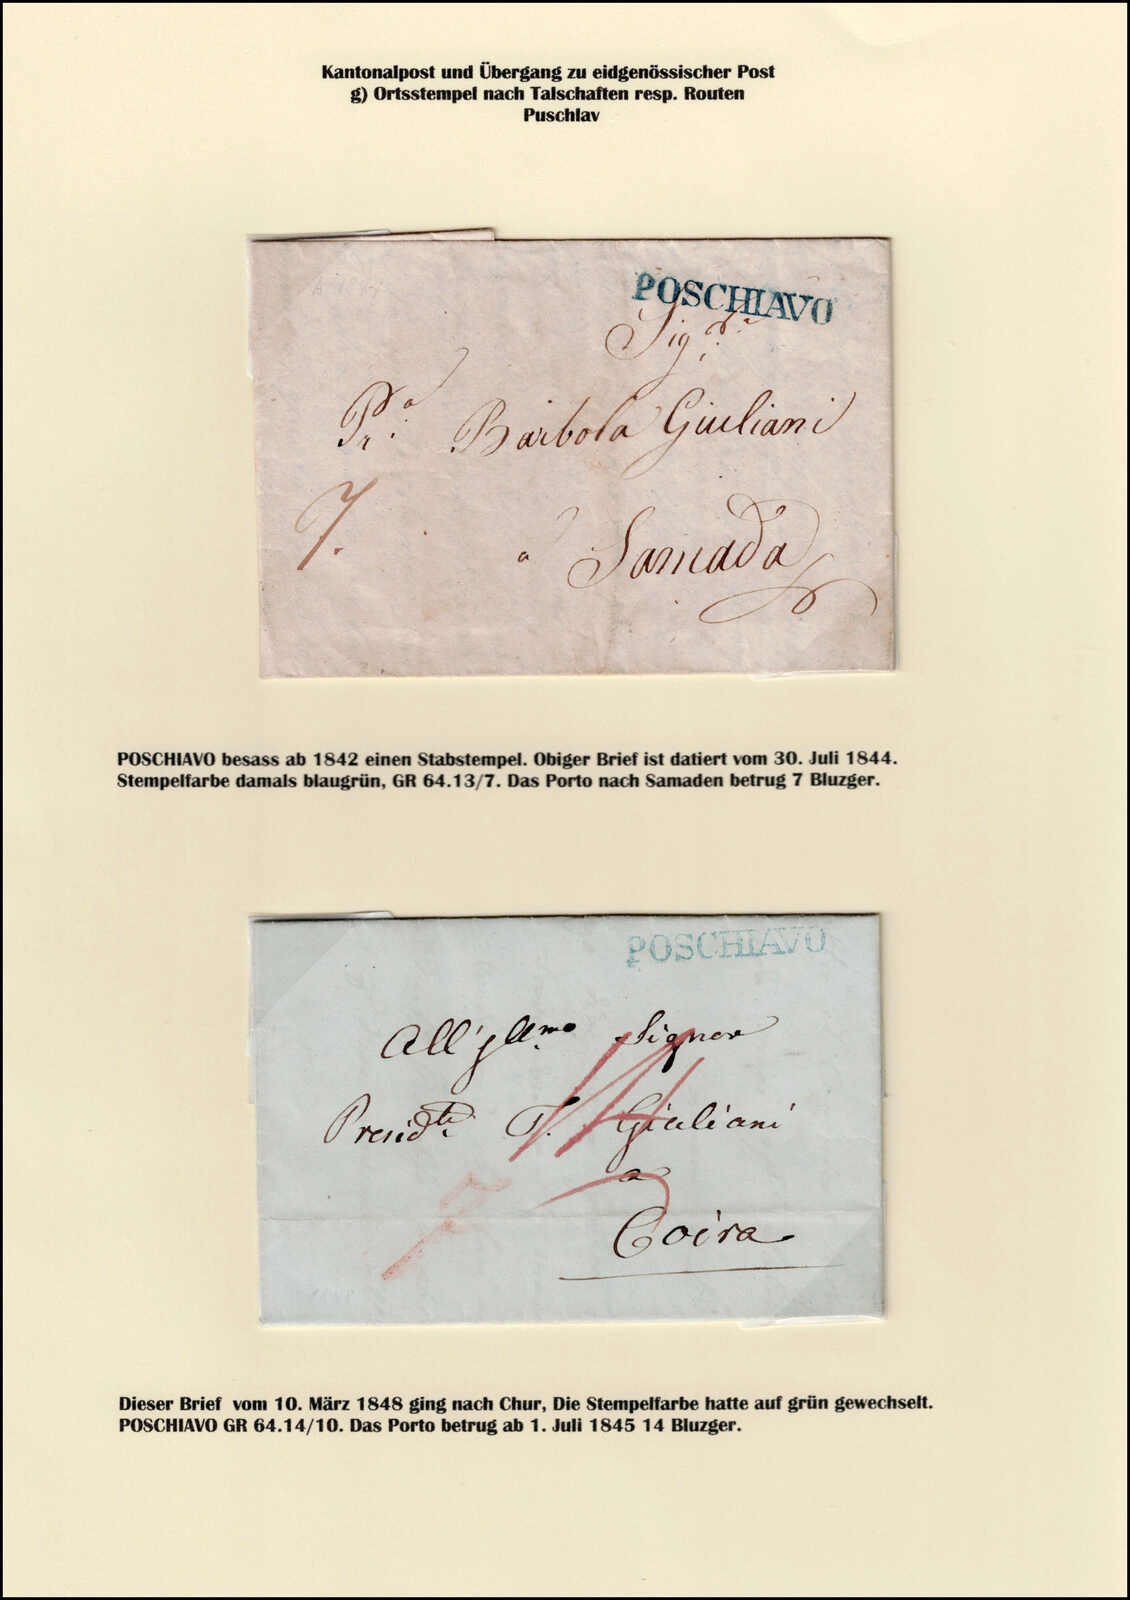 Kantonalpost und Übergang zu eidgenössischer Post
g) Ortsstempel nach Talschaften resp. Routen
Puschlav
POSCHIAVO
Sig.ra
Pr.a Barbola Giuliani
7.
a Samada
POSCHIAVO besass ab 1842 einen Stabstempel. Obiger Brief ist datiert vom 30. Juli 1844.
Stempelfarbe damals blaugrün, GR 64.13/7. Das Porto nach Samaden betrug 7 Bluzger.
POSCHIAVO
All' Signor
Presid.te T. Giuliani
a
Coira
Dieser Brief vom 10. März 1848 ging nach Chur, Die Stempelfarbe hatte auf grün gewechselt.
POSCHIAVO GR 64.14/10. Das Porto betrug ab 1. Juli 1845 14 Bluzger.